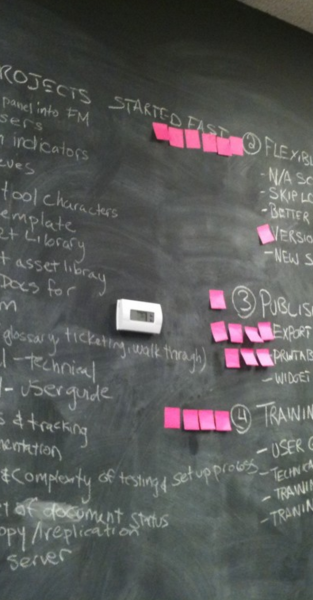 ROJECTS
panel into FM
sers
n indicators
eues
tool characters
emplate
et Library
t asset library
Docs for
m
glossary ticketing, walk through)
l - Technical
l - userguide
s & tracking
mentation
& Complexity of testing & setup process
of document status
opy / replication
server
STARTED FAST
② FLEXIBL
- N/A SC
- SKIP LO
- BETTER
VERSIO
- NEW S
③ PUBLIS
EXPORT
PRINTAB
- WIDGET
④ TRAININ
- USER G
- TECHNICA
- TRAININ
- TRANIN